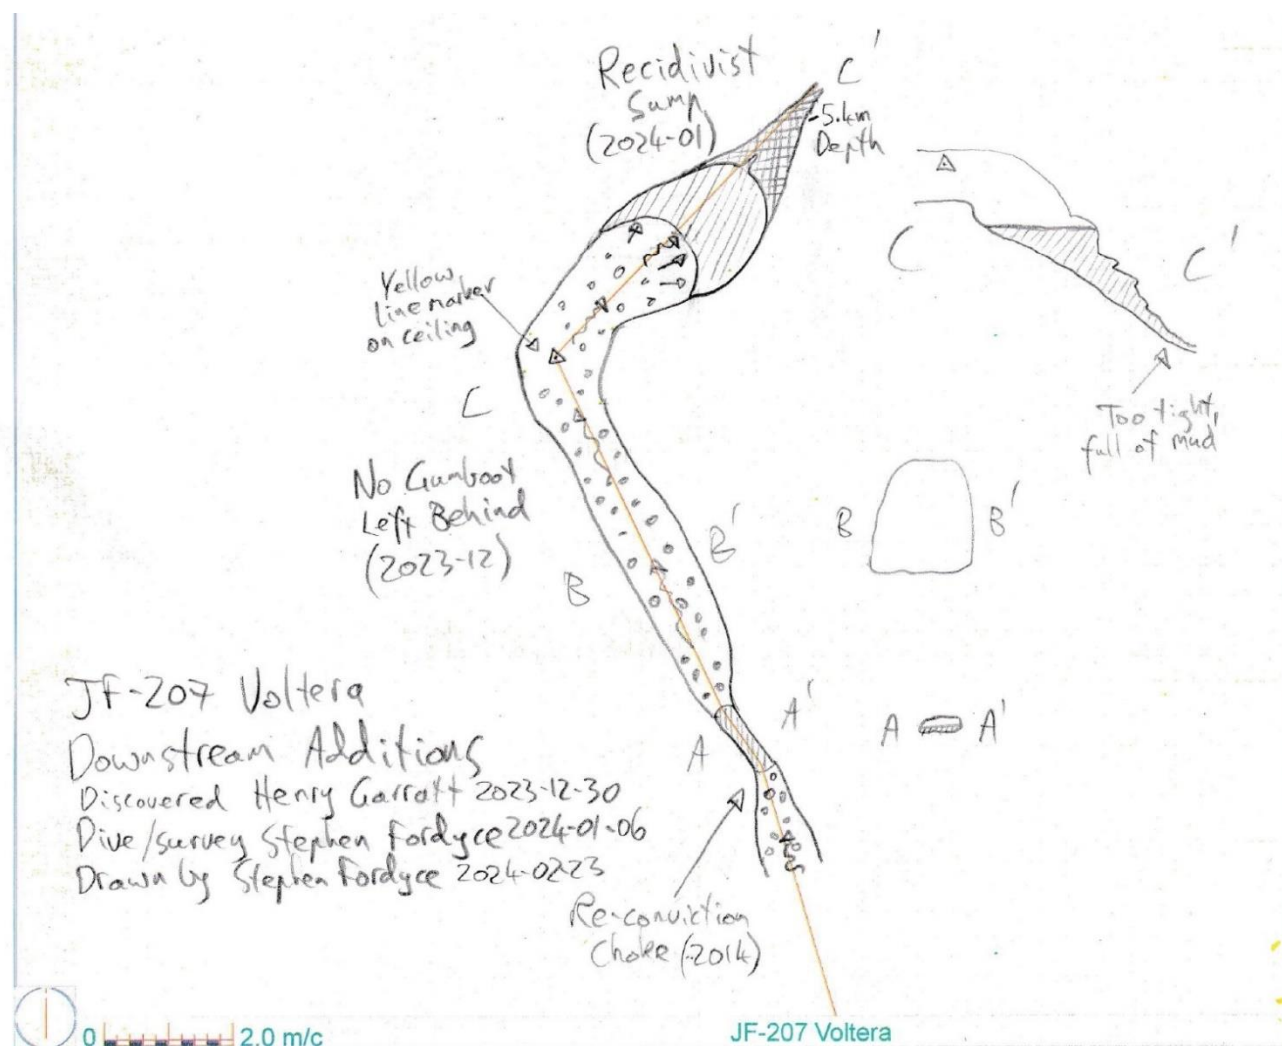 Recidivist
Sump
(2024-01)
C'
-5.4m
Depth
C
C'
Too tight,
full of mud
Yellow
line marker
on ceiling
C
No Gumboot
Left Behind
(2023-12)
B
B'
B
B'
JF-207 Voltera
Downstream Additions
Discovered Henry Garratt 2023-12-30
Dive/survey Stephen Fordyce 2024-01-06
Drawn by Stephen Fordyce 2024-02-23
A
A'
A
A'
Re-conviction
Choke (2014)
0
2.0 m/c
JF-207 Voltera